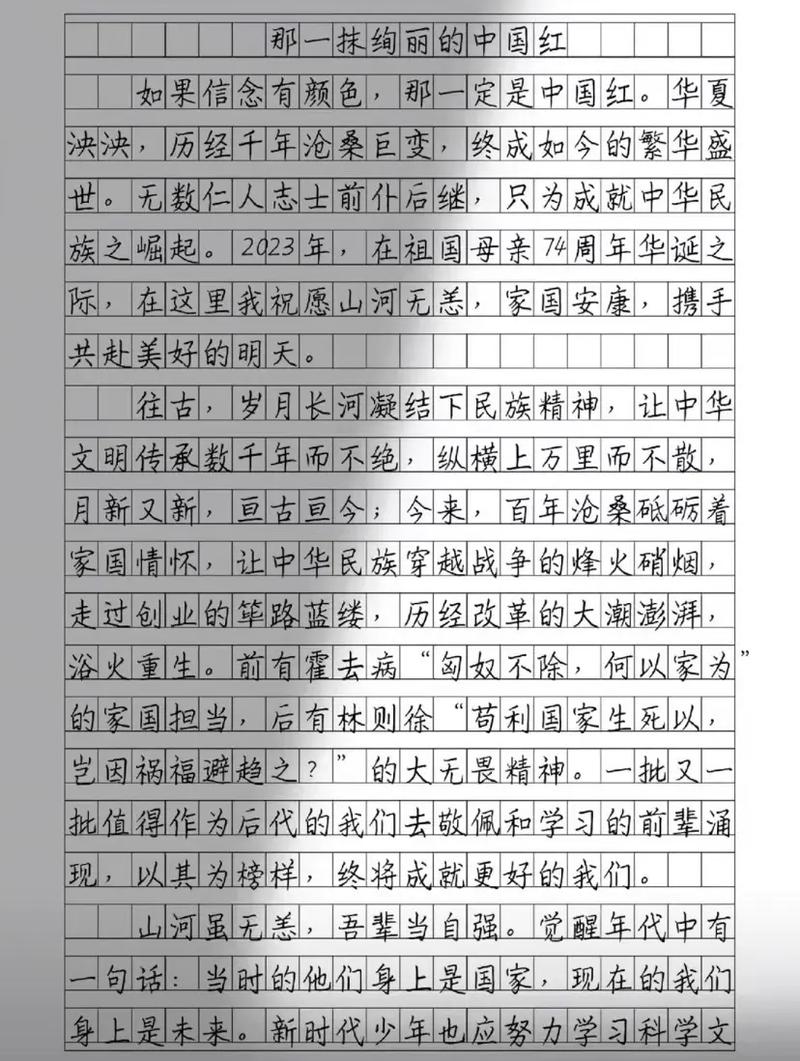 那一抹绚丽的中国红
如果信念有颜色，那一定是中国红。华夏
泱泱，历经千年沧桑巨变，终成如今的繁华盛
世。无数仁人志士前仆后继，只为成就中华民
族之崛起。2023年，在祖国母亲74周年华诞之
际，在这里我祝愿山河无恙，家国安康，携手
共赴美好的明天。
往古，岁月长河凝结下民族精神，让中华
文明传承数千年而不绝，纵横上万里而不散，
月新又新，亘古亘今；今来，百年沧桑砥砺着
家国情怀，让中华民族穿越战争的烽火硝烟，
走过创业的筚路蓝缕，历经改革的大潮澎湃，
浴火重生。前有霍去病“匈奴不除，何以家为”
的家国担当，后有林则徐“苟利国家生死以，
岂因祸福避趋之？”的大无畏精神。一批又一
批值得作为后代的我们去敬佩和学习的前辈涌
现，以其为榜样，终将成就更好的我们。
山河虽无恙，吾辈当自强。觉醒年代中有
一句话：当时的他们身上是国家，现在的我们
身上是未来。新时代少年也应努力学习科学文